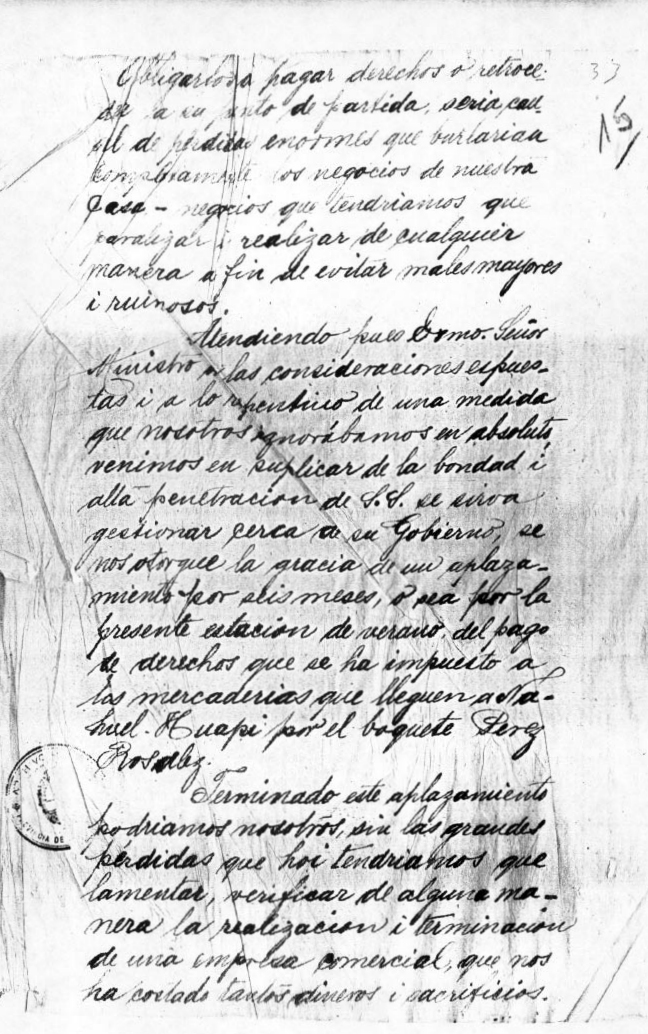 Obligarlos a pagar derechos o retroce-
33
der a su punto de partida, seria cau-
15
sa de perdidas enormes que burlarian
completamente los negocios de nuestra
Casa - negocios que tendriamos que
paralizar i realizar de cualquier
manera a fin de evitar males mayores
i ruinosos.
Atendiendo pues Exmo. Señor
Ministro a las consideraciones espues-
tas i a lo repentino de una medida
que nosotros ignorábamos en absoluto,
venimos en suplicar de la bondad i
alta penetracion de S.S. se sirva
gestionar cerca de su Gobierno, se
nos otorgue la gracia de un aplaza-
miento por seis meses, o sea por la
presente estacion de verano, del pago
de derechos que se ha impuesto a
las mercaderias que lleguen a Na-
huel-Huapi por el boquete Perez
Rosalez.
Terminado este aplazamiento
podriamos nosotros, sin las grandes
pérdidas que hoi tendriamos que
lamentar, verificar de alguna ma-
nera la realizacion i terminacion
de una empresa comercial, que nos
ha costado tantos dineros i sacrificios.